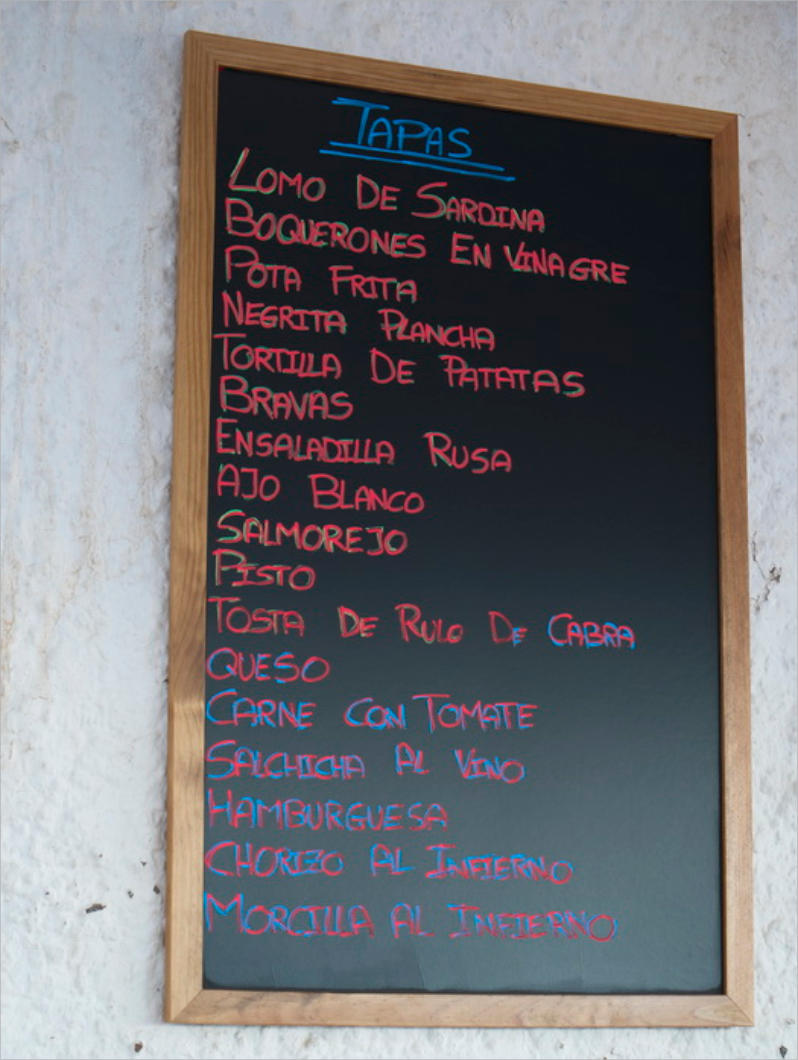 TAPAS
LOMO DE SARDINA
BOQUERONES EN VINAGRE
POTA FRITA
NEGRITA PLANCHA
TORTILLA DE PATATAS
BRAVAS
ENSALADILLA RUSA
AJO BLANCO
SALMOREJO
PISTO
TOSTA DE RULO DE CABRA
QUESO
CARNE CON TOMATE
SALCHICHA AL VINO
HAMBURGUESA
CHORIZO AL INFIERNO
MORCILLA AL INFIERNO